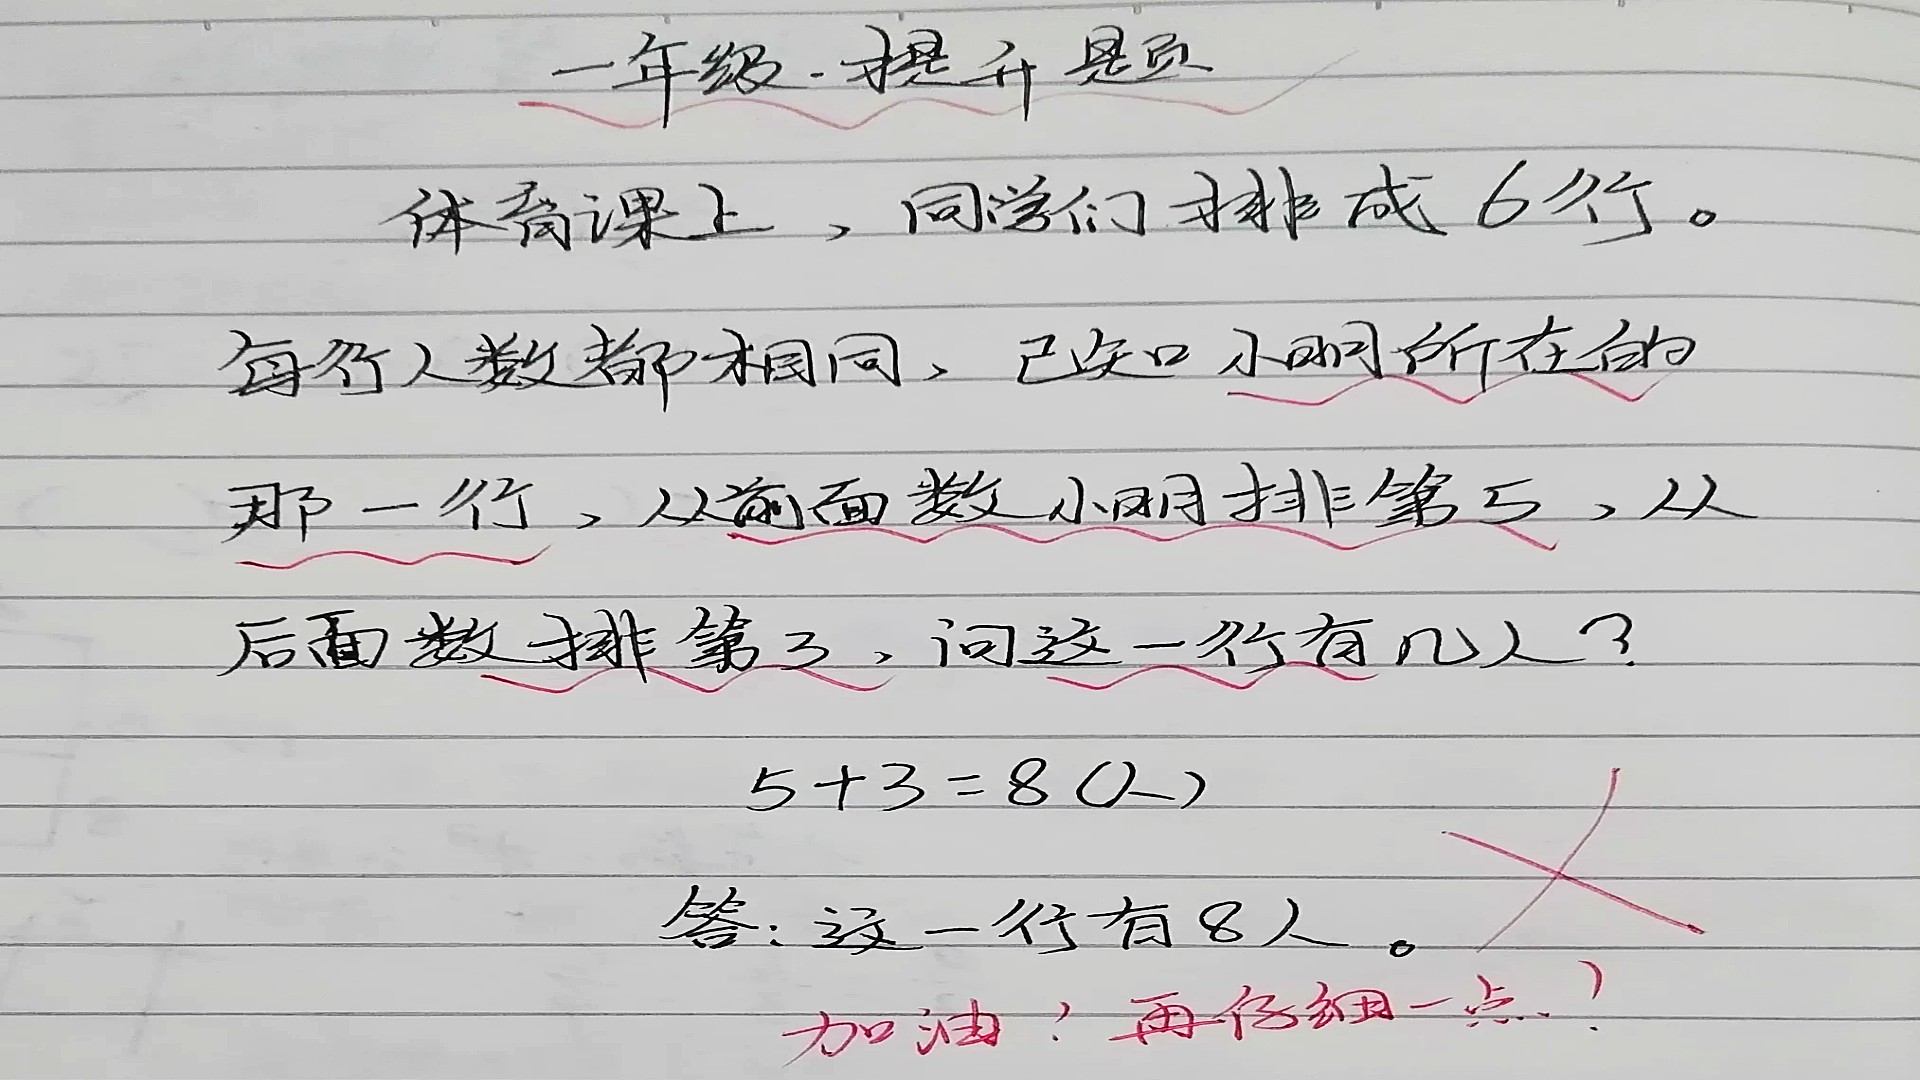 一年级·提升题
体育课上，同学们排成6行。
每行人数都相同、已知小明所在的
那一行，从前面数小明排第5，从
后面数排第3，问这一行有几人？
5+3=8(人)
答：这一行有8人。
加油！再仔细一点！